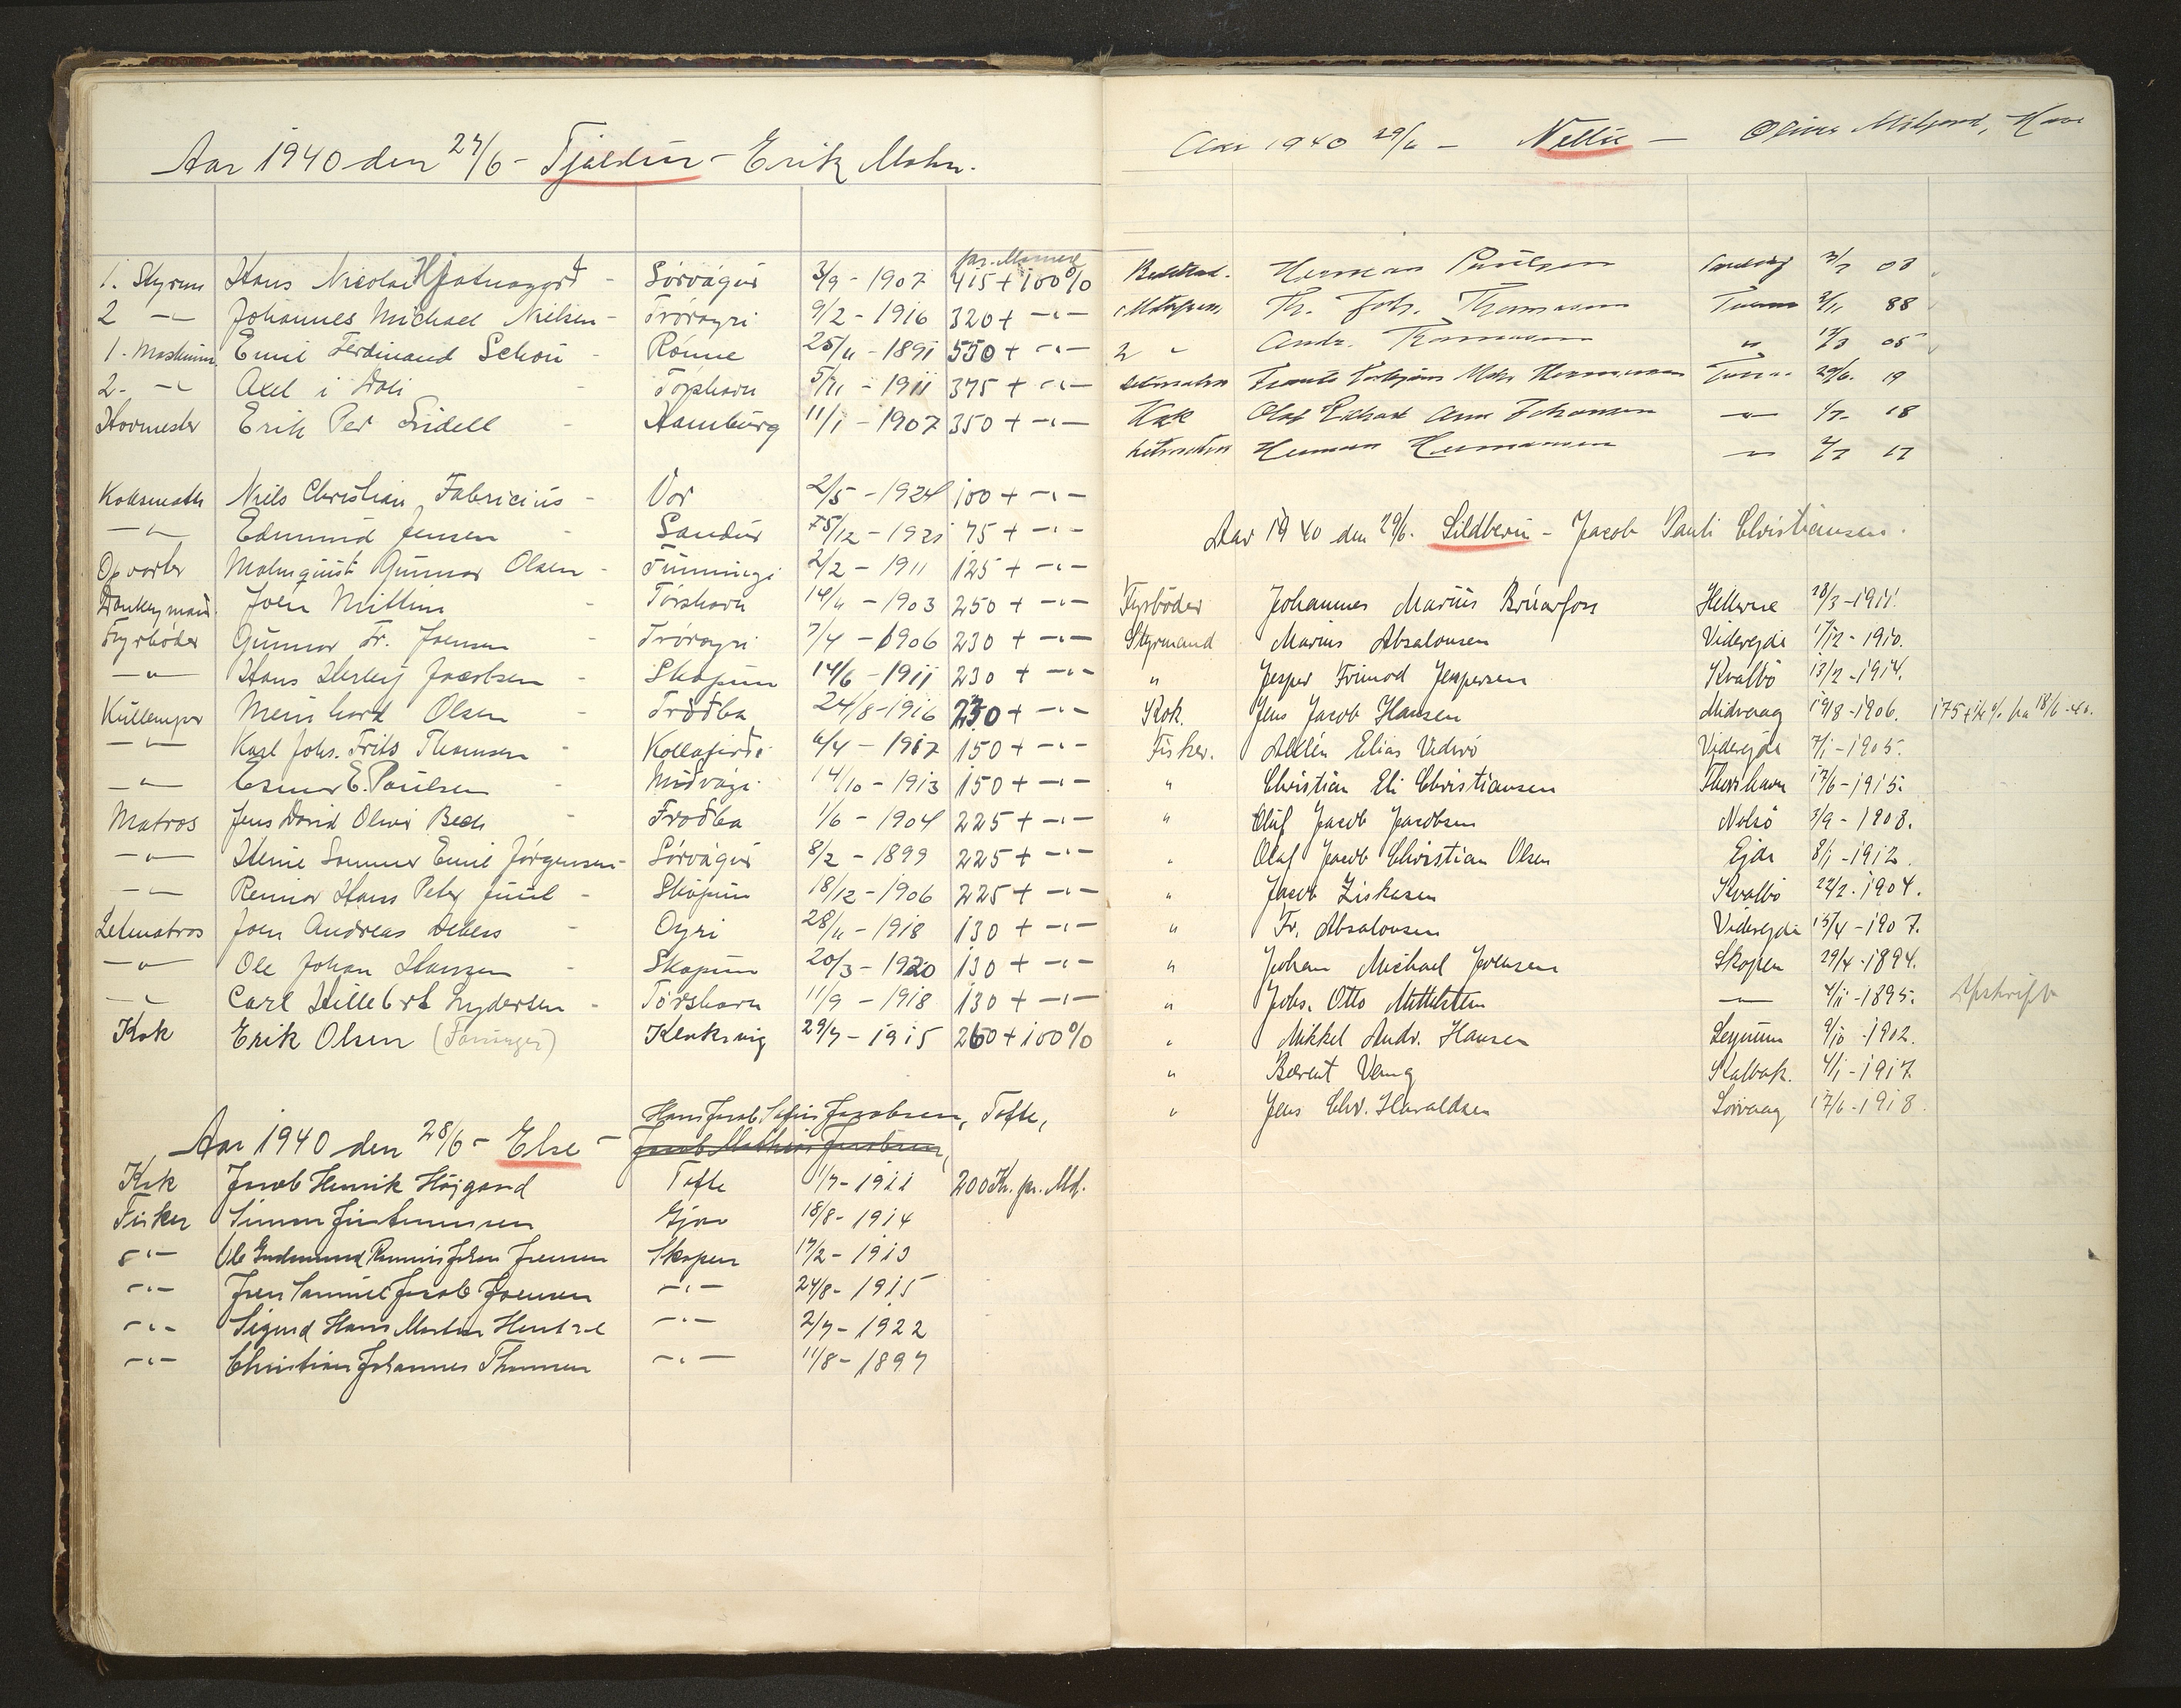 Aar 1940 den 24/6 - Tjaldur - Erik Mohr.
pr. Maaned
1. Styrm Hans Nicolai Hjatnagarð - Sörvágur 3/9 - 1907 415 + 100%
2 -"- Johannes Michael Nielsen - Tvöroyri 9/2 - 1916 320 + -"-
1. Maskinm. Emil Ferdinand Schou - Rönne 25/11 - 1891 550 + -"-
2. -"- Axel i Dali Torshavn 5/11 - 1911 375 + -"-
Hovmester Erik Per Lidell - Hamburg 11/1 - 1907 350 + -"-
Koksmath Niels Christian Fabricius - Vor 2/5 - 1924 100 + -"-
-"- Edmund Jensen - Sandur /12 - 1921 75 + -"-
Opvarter Malmquist Gunnar Olsen - Funningi 2/2 - 1911 125 + -"-
Donkeymand. Joen Mittün - Torshavn 14/11 - 1903 250 + -"-
Fyrböder Gunnar Fr. Joensen - Tvöroyri 7/4 - 1906 230 + -"-
-"- Hans Herleif Jacobsen - Skopun 14/6 - 1911 230 + -"-
Kullemper Meinhard Olsen - Froðba 24/8 - 1916 + -"-
-"- Karl Johs. Frits Thomsen - Kollafirði 6/4 - 1917 150 + -"-
-"- E. Poulsen - Miðvági 14/10 - 1913 150 + -"-
Matros Jens David Oliver Bech - Froðba 1/6 - 1904 225 + -"-
-"- Heine Sommer Emil Jörgensen - Sörvágur 8/2 - 1899 225 + -"-
-"- Reinar Hans Peter Juul - Skopun 18/12 - 1906 225 + -"-
Letmatros Joen Andreas Debess - Oyri 28/11 - 1918 130 + -"-
-"- Ole Johan Hansen - Skopun 20/3 - 1920 130 + -"-
-"- Carl Hillebrt Lydersen - Torshavn 11/9 - 1918 130 + -"-
Kok Erik Olsen Klaksvig 29/7 - 1915 260 + 100%
Hans Jacob Jacobsen, Tofte,
Aar 1940 den 28/6 - Else - Jacob Mathias Jacobsen,
Kok Jacob Henrik Höjgaard Tofte 1/7 - 1911 200 Kr. pr. Md.
Fisker Simon Justinussen Gjov 18/8 - 1914
-"- Ole Gudmund Johan Joensen Skopen 17/2 - 1913
-"- Joen Samuel Jacob Joensen -"- 24/8 - 1915
-"- Sigurd Hans Morten Hentze -"- 2/7 - 1922
-"- Christian Johannes Thomsen -"- 11/8 - 1897
Aar 1940 29/6 - Nellie -
Herman Poulsen 03
Th. Joh. Thomasen 88
2 " Andr. Thomasen " 05
Hermansen 29/6. 19
Kok Olaf Johansen -"- 18
Letmatros Herman Hermansen -"- 17
Aar 1940 den 29/6. Sildberin - Jacob Pauli Christiansen.
Fyrböder Johannes Marius Brúarfoss Hellerne 28/3 - 1911.
Styrmand Marius Absalonsen Viderejde 17/12 - 1910.
" Jesper Frimod Jespersen Kvalbö 13/2 - 1914.
Kok. Jens Jacob Hansen Midvaag 19/8 - 1906. 175 + % fra 18/6 - 40.
Fisker. Elias Viderö Viderejde 7/1 - 1905.
" Christian Eli Christiansen Thorshavn 17/6 - 1915.
" Oluf Jacob Jacobsen Nolsö 3/9 - 1908.
" Olaf Jacob Christian Olsen Ejde 8/1 - 1912.
" Jacob Ziskasen Kvalbö 22/2 - 1904.
" Fr. Absalonsen Viderejde 15/4 - 1907.
" Johan Michael Joensen Skopen 29/4 - 1894.
" Johs. Otto Mittelstein -"- 4/11 - 1895. Afskrift
" Mikkel Andr. Hansen Leynum 9/10 - 1902.
" Berent Vang Kalbak. 4/1 - 1917.
" Jens Chr. Haraldsen Sorvaag 17/6 - 1918.